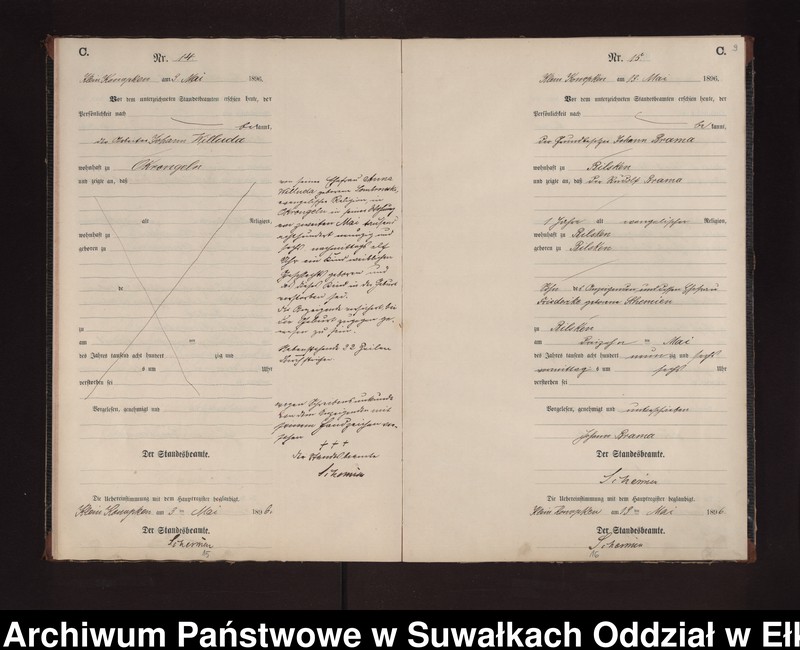 C.
Nr. 14
Klein Konopken am 3. Mai 1896.
Vor dem unterzeichneten Standesbeamten erschien heute, der
Persönlichkeit nach
bekannt,
der Arbeiter Johann
wohnhaft zu Okrongeln
und zeigte an, daß
alt Religion,
wohnhaft zu
geboren zu
de
zu
am ten
des Jahres tausend acht hundert zig und
s um Uhr
verstorben sei
Vorgelesen, genehmigt und
Der Standesbeamte.
Die Uebereinstimmung mit dem Hauptregister beglaubigt.
Klein Konopken am 3ten Mai 1896.
Der Standesbeamte.
von seiner Ehefrau Anna
geborene
evangelischer Religion, in
Okrongeln in seiner Wohnung
am zweiten Mai tausend
achthundert neunzig und
sechs nachmittags elf
Uhr ein Kind weiblichen
Geschlechts geboren und
daß dieses Kind in der Geburt
verstorben sei.
Der Anzeigende versichert, bei
der Geburt zugegen ge-
wesen zu sein.
Nebenstehende 22 Zeilen
durchstrichen
wegen Schreibensunkunde
von dem Anzeigenden mit
seinem Handzeichen ver-
sehen
+ + +
Der Standesbeamte
C. 3
Nr. 15
Klein Konopken am 15 Mai 1896.
Vor dem unterzeichneten Standesbeamten erschien heute, der
Persönlichkeit nach
bekannt,
der Grundbesitzer Johann Brama
wohnhaft zu Bilsken
und zeigte an, daß der Rudolf Brama
1 Jahr alt evangelischer Religion,
wohnhaft zu Bilsken
geboren zu Bilsken
Sohn des Anzeigenden und dessen Ehefrau
Friederike geborene
zu Bilsken
am ten Mai
des Jahres tausend acht hundert neun zig und sechs
vormittag s um sechs Uhr
verstorben sei
Vorgelesen, genehmigt und unterschrieben
Johann Brama
Der Standesbeamte.
Die Uebereinstimmung mit dem Hauptregister beglaubigt.
Klein Konopken am ten Mai 1896
Der Standesbeamte.
Archiwum Państwowe w Suwałkach Oddział w Ełk